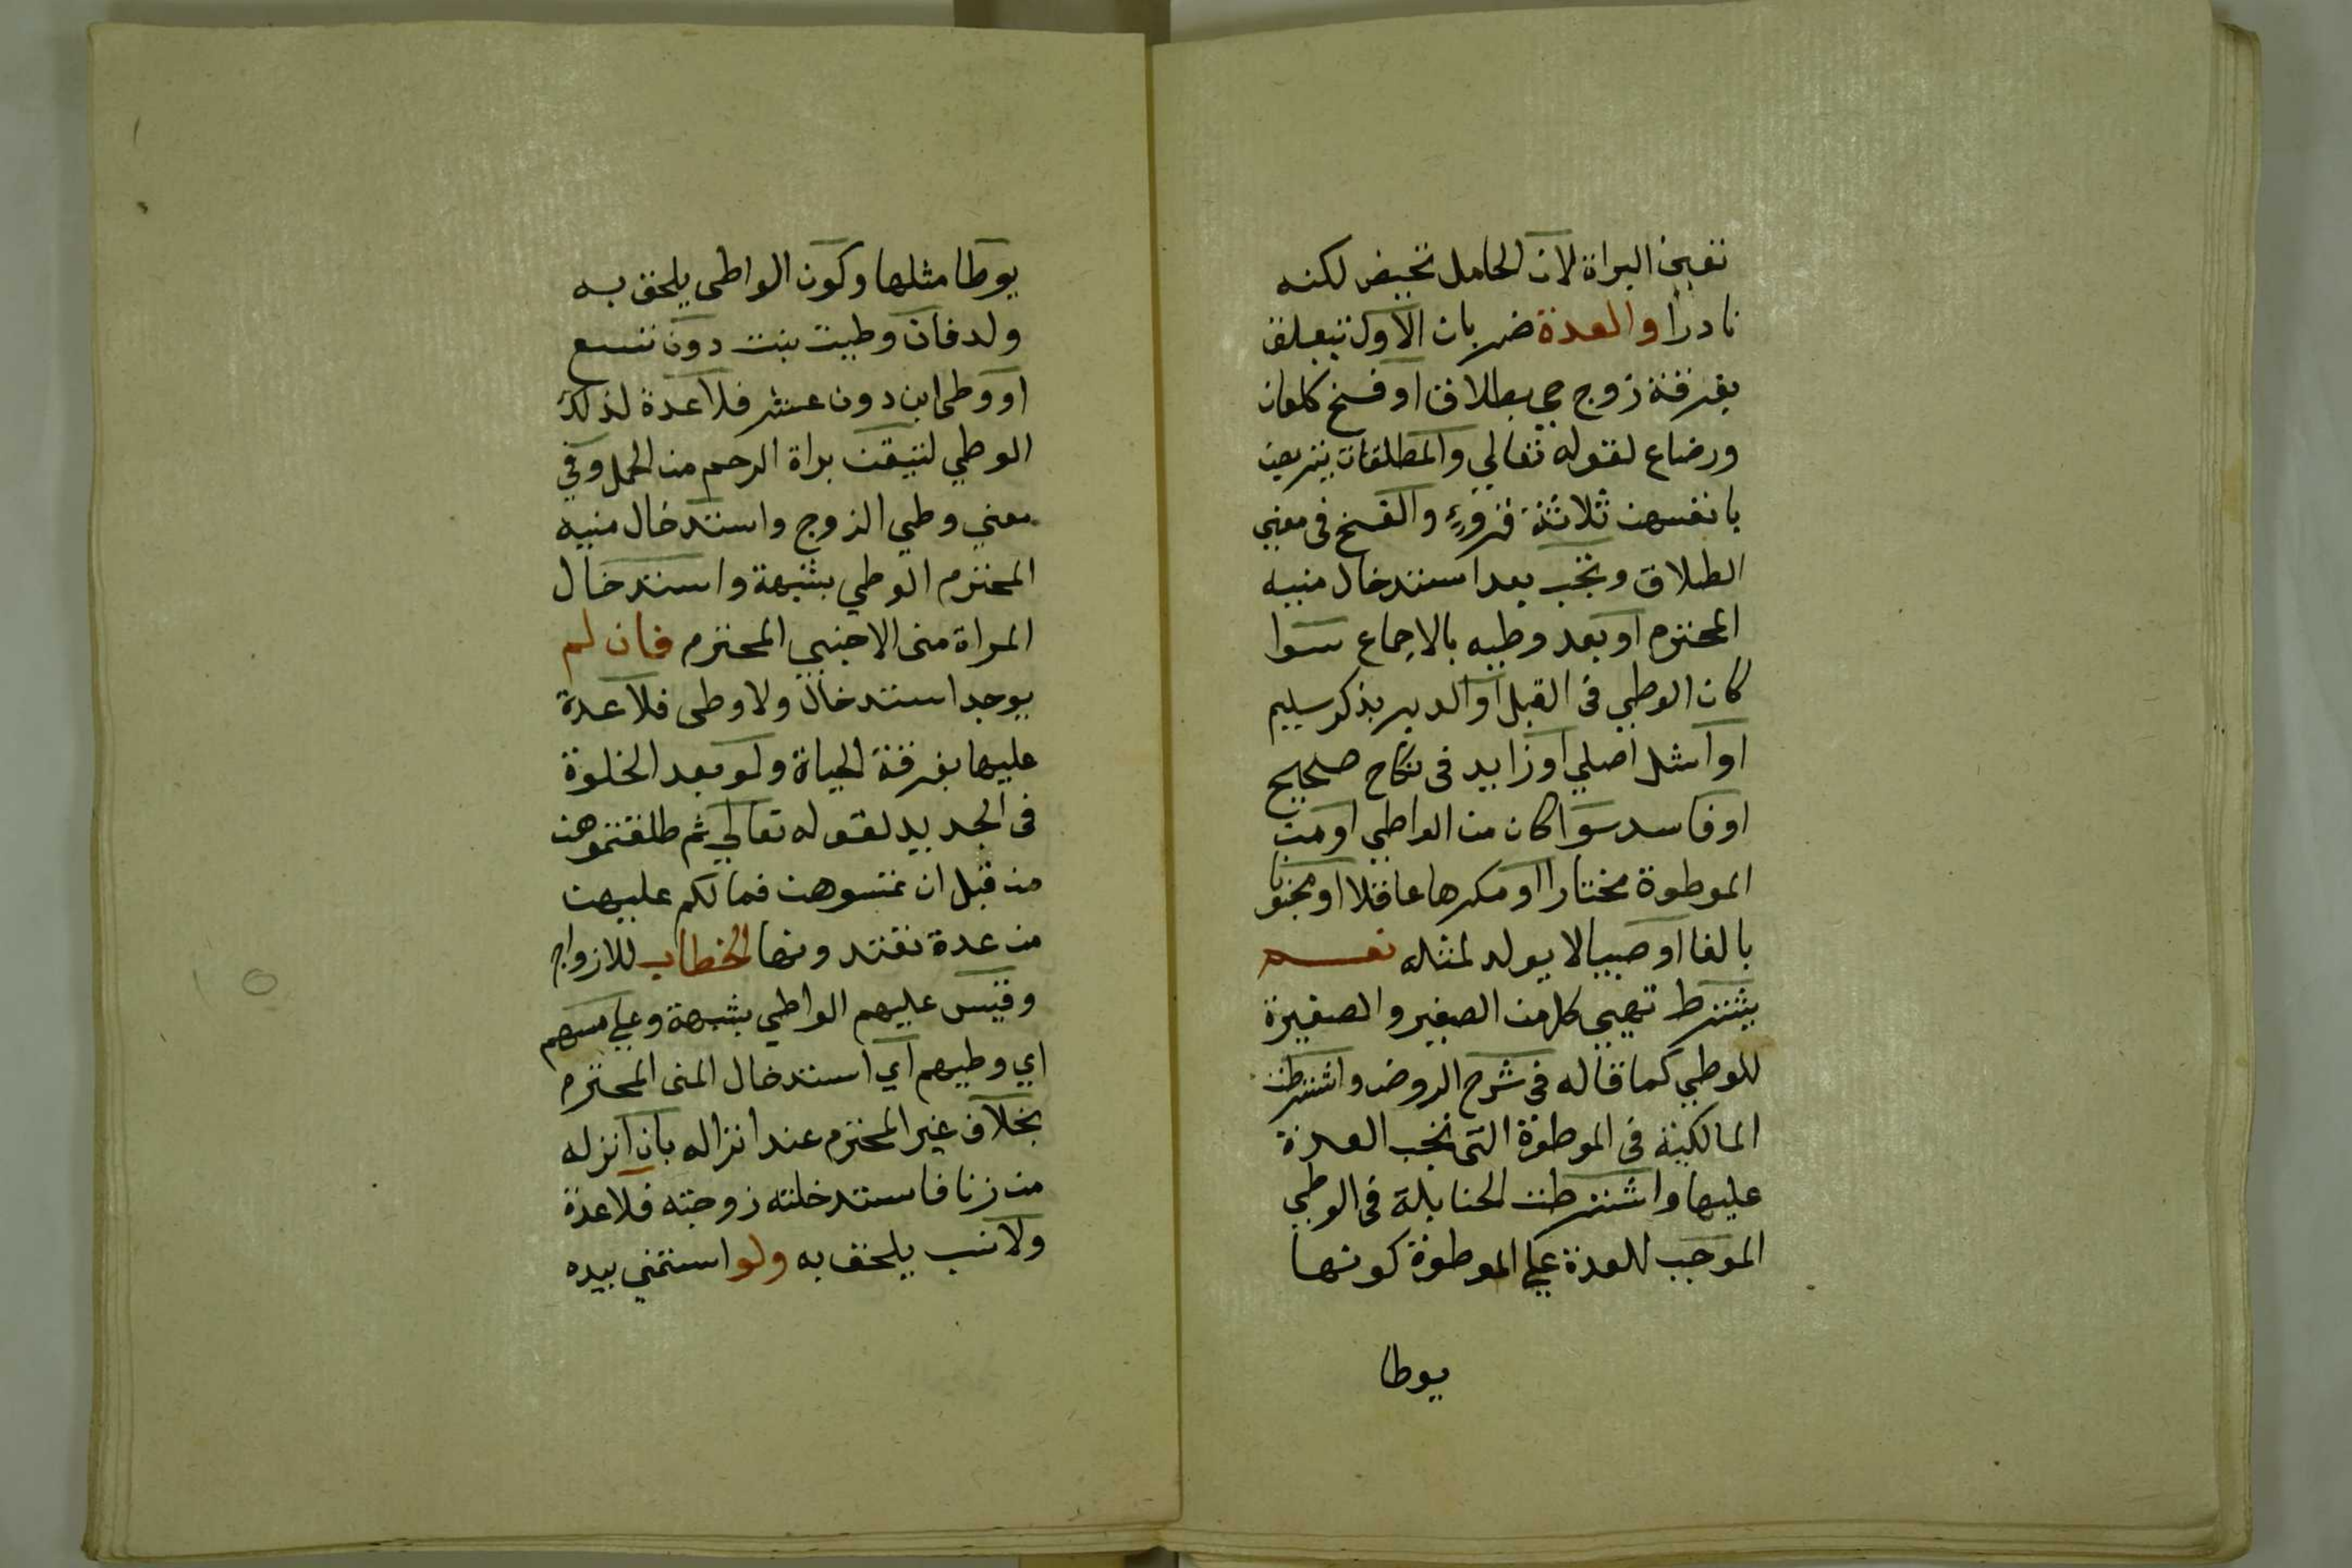 تفيد البراة لان الحامل تحيض لكنه
نادرا والعدة ضربان الاول تتعلق
بفرقة زوج حي بطلاق او فسخ كلعان
ورضاع لقوله تعالي والمطلقات يتربصن
بانفسهن ثلاثة قروء والفسخ فى معني
الطلاق وتجب بعد استدخال منيه
المحترم او بعد وطيه بالاجماع سوا
كان الوطي فى القبل او الدبر بذكر سليم
او اشل اصلي او زايد فى نكاح صحيح
او فاسد سوا كان من الواطي او من
الموطوة مختارا او مكرها عاقلا او مجنونا
بالغا او صبيا لا يولد لمثله نعم
يشترط تهيي كل من الصغير والصغيرة
للوطي كما قاله فى شرح الروض واشترطت
المالكية فى الموطوة التى تجب العدة
عليها واشترطت الحنابلة فى الوطي
الموجب للعدة علي الموطوة كونها
يوطا
يوطا مثلها وكون الواطى يلحق به
ولد فان وطيت بنت دون تسع
او وطى ابن دون عشر فلا عدة لذلك
الوطي لتيقن براة الرحم من الحمل وفي
معني وطي الزوج واستدخال منيه
المحترم الوطي بشبهة واستدخال
المراة منى الاجنبي المحترم فان لم
يوجد استدخال ولا وطى فلا عدة
عليها بفرقة الحياة ولو بعد الخلوة
فى الجديد لقوله تعالي ثم طلقتموهن
من قبل ان تمسوهن فما لكم عليهن
من عدة تعتدونها الخطاب للازواج
وقيس عليهم الواطي بشبهة وعلي مسهم
اي وطيهم اي استدخال المنى المحترم
بخلاف غير المحترم عند انزاله بان انزله
من زنا فاستدخلته زوجته فلا عدة
ولا نسب يلحق به ولو استمني بيده